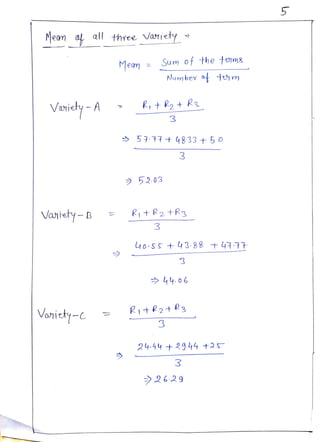 5
Mean of all three Variety →
Mean = Sum of the terms
Number of term
Variety - A = R1 + R2 + R3
3
⇒ 57.77 + 48.33 + 50
3
⇒ 52.03
Variety - B = R1 + R2 + R3
3
⇒ 40.55 + 43.88 + 47.77
3
⇒ 44.06
Variety - C = R1 + R2 + R3
3
⇒ 24.44 + 29.44 + 25
3
⇒ 26.29